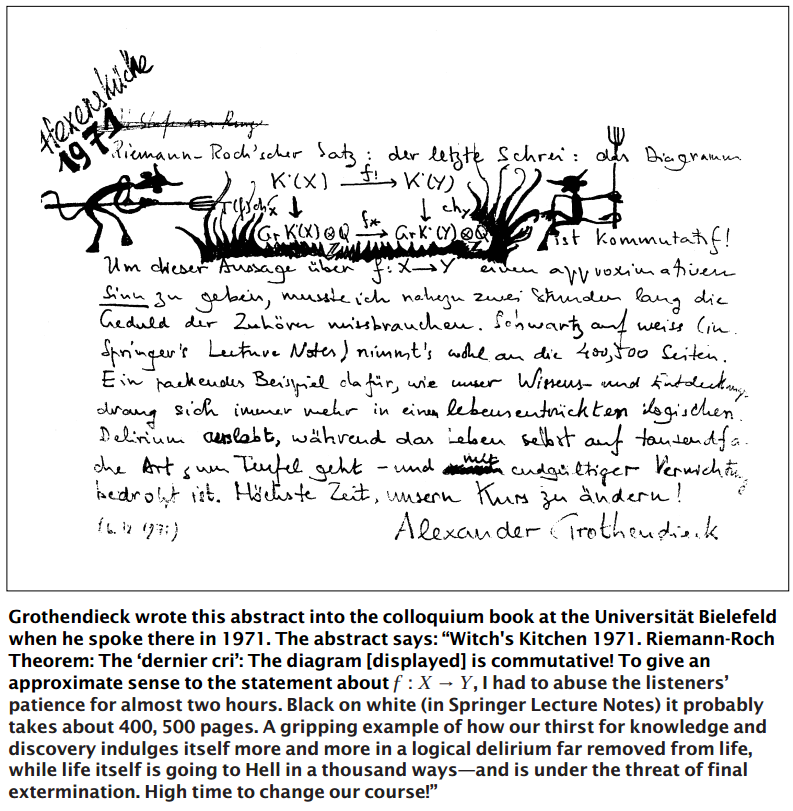 Hexenküche
1971
Riemann-Roch'scher Satz: der letzte Schrei: das Diagramm
K˙(X) f! → K˙(Y)
T(f)ch_X ↓ ↓ ch_Y
Gr K˙(X) ⊗_Z Q f* → Gr K˙(Y) ⊗_Z Q
ist kommutatif!
Um dieser Aussage über f: X → Y einen approximativen
Sinn zu geben, musste ich nahezu zwei Stunden lang die
Geduld der Zuhörer missbrauchen. Schwartz auf weiss (in
Springer's Lecture Notes) nimmt's wohl an die 400, 500 Seiten.
Ein packendes Beispiel dafür, wie unser Wissens- und Entdeckungs-
drang sich immer mehr in einem lebensentrückten logischen
Delirium auslebt, während das Leben selbst auf tausendfa-
che Art zum Teufel geht - und mit endgültiger Vernichtung
bedroht ist. Höchste Zeit, unsern Kurs zu ändern!
Alexander Grothendieck
Grothendieck wrote this abstract into the colloquium book at the Universität Bielefeld
when he spoke there in 1971. The abstract says: “Witch's Kitchen 1971. Riemann-Roch
Theorem: The ‘dernier cri’: The diagram [displayed] is commutative! To give an
approximate sense to the statement about f : X → Y, I had to abuse the listeners’
patience for almost two hours. Black on white (in Springer Lecture Notes) it probably
takes about 400, 500 pages. A gripping example of how our thirst for knowledge and
discovery indulges itself more and more in a logical delirium far removed from life,
while life itself is going to Hell in a thousand ways—and is under the threat of final
extermination. High time to change our course!”